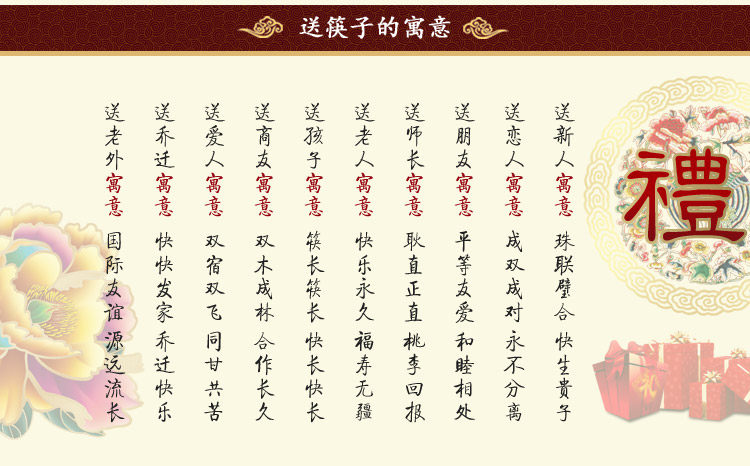 送筷子的寓意
送新人寓意 珠联璧合 快生贵子
送恋人寓意 成双成对 永不分离
送朋友寓意 平等友爱 和睦相处
送师长寓意 耿直正直 桃李回报
送老人寓意 快乐永久 福寿无疆
送孩子寓意 筷长筷长 快长快长
送商友寓意 双木成林 合作长久
送爱人寓意 双宿双飞 同甘共苦
送乔迁寓意 快快发家 乔迁快乐
送老外寓意 国际友谊 源远流长
禮
礼